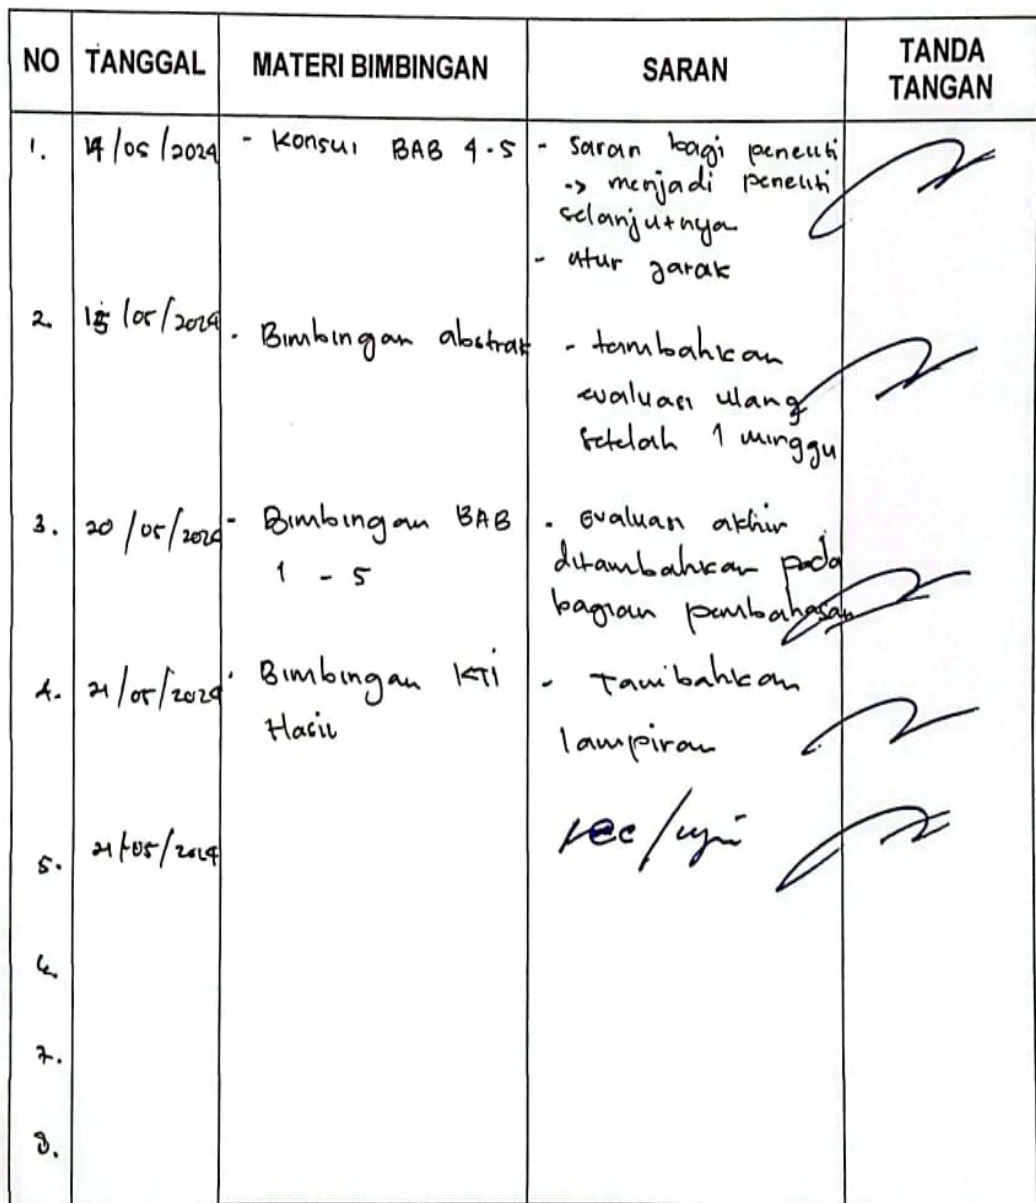 NO TANGGAL MATERI BIMBINGAN SARAN TANDA TANGAN
1. 14/05/2024 - Konsul BAB 4-5 - Saran bagi peneliti
-> menjadi peneliti
selanjutnya
- atur jarak
2. /05/2024 - Bimbingan abstrak - tambahkan
evaluasi ulang
setelah 1 minggu
3. 20/05/2024 - Bimbingan BAB - evaluasi akhir
1 - 5 ditambahkan pada
bagian pembahasan
4. 21/05/2024 - Bimbingan KTI - Tambahkan
Hasil lampiran
5. 21/05/2024 /uji
6.
7.
8.